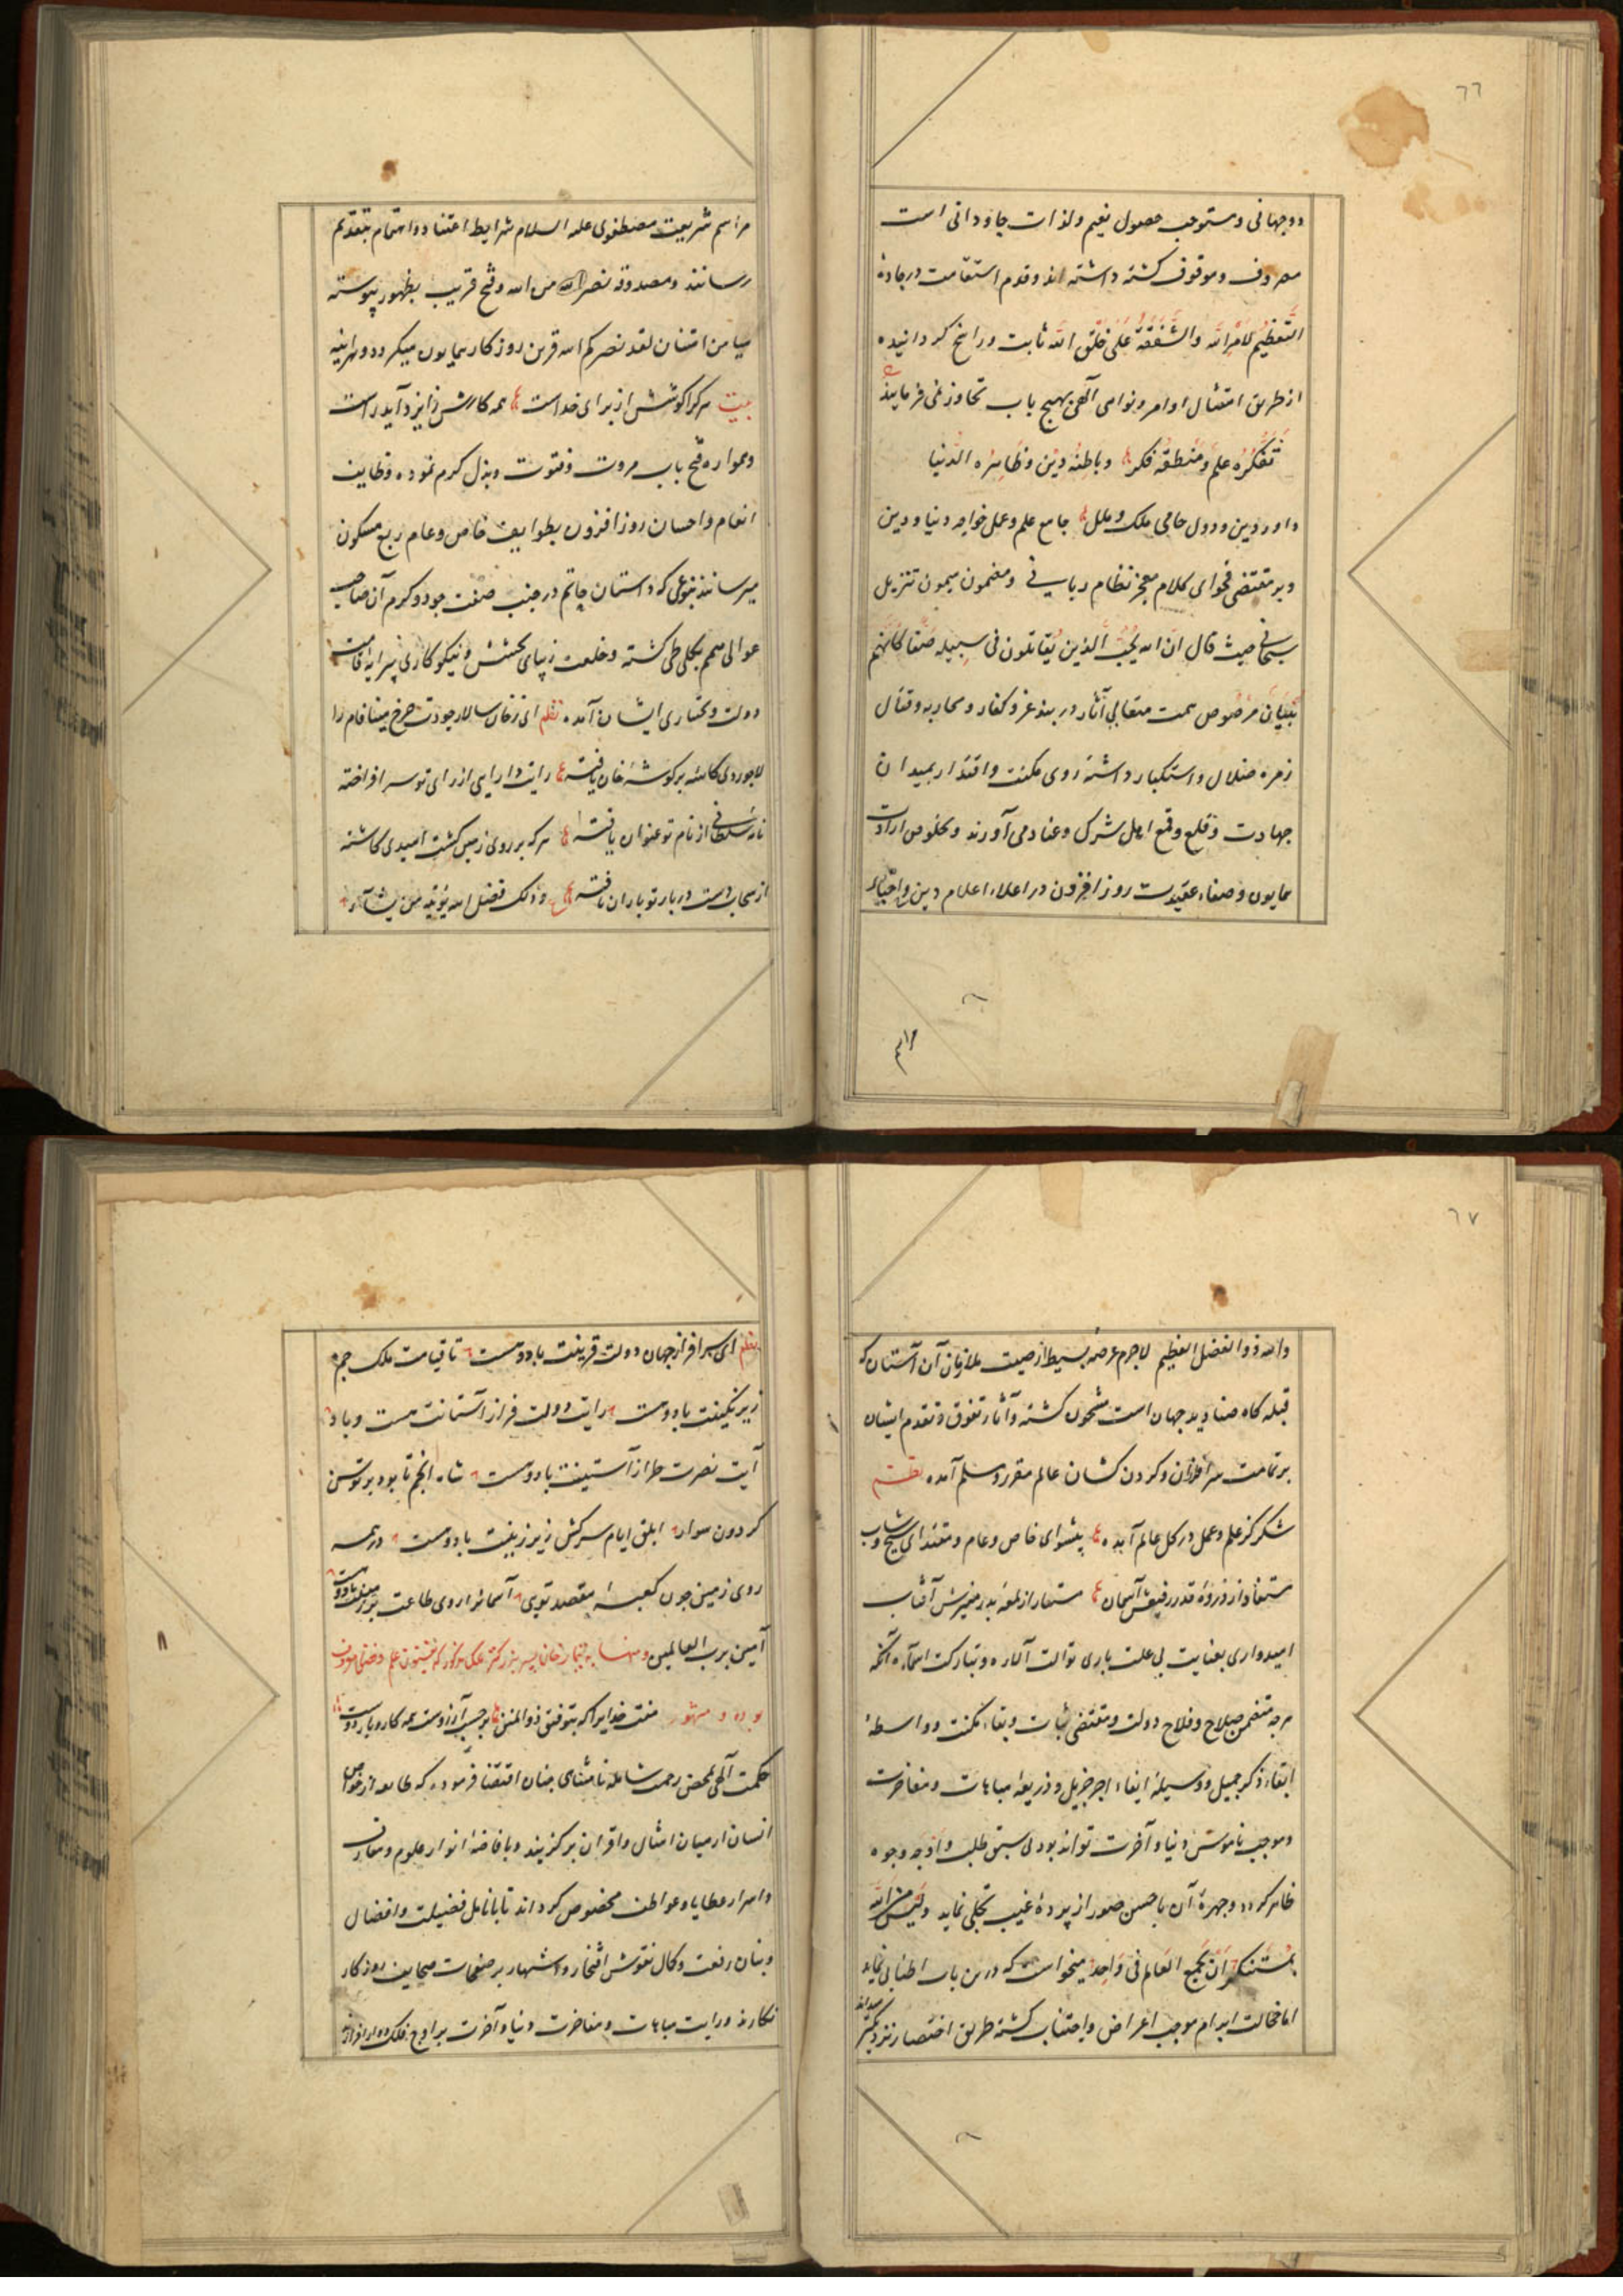 ٦٦
دوجهانی ومستوجب حصول نعیم ولذات جاودانی است
مصروف وموقوف کشته داشته اند وقدم استقامت در جادهٔ
التَّعظیمُ لِاَمْرِ الله وَالشَّفَقَةُ عَلیٰ خَلْقِ الله ثابت وراسخ کردانیده
از طریق امتثال اوامر ونواهی آلهی بهیچ باب تجاوز نمی فرمایند
تَفَکُّرُهُ عِلمٌ وَمَنطِقُهُ وباطِنُهُ دینٌ وظاهِرُه الدُّنیا
داور دین ودول حامی ملک وملل جامع علم وعمل خواجه دنیا ودین
وبر مقتضی فحوای کلام معجز نظام ربانی ومضمون میمون تنزیل
سبحانی حیث قال ان الله یُحِبُّ الَّذین یُقاتلون فی سبیله صَفًّا کَاَنَّهُم
بُنْیَانٌ مَرْصُوص همت متعالی آثار در بند غزو کفار ومحاربه وقتال
زمره ضلال واستکبار داشته روی مکنت واقتدار بمیدان
جهادت وقلع وقمع اهل شرک وعناد می آورند وبخلوص ارادت
همایون وصفاء عقیدت روز افزون در اعلاء اعلام دین واحیاء
مراسم
مراسم شریعت مصطفوی علیه السلام شرایط اعتناء واهتمام بتقدیم
رسانند ومصدوقه نصر من الله وفتح قریب بظهور پیوسته
میامن امتنان لقد نصرکم الله قرین روزکار همایون میکردد وهرآینه
بیت هرکرا کوشش از برای خداست همه کارش ز ایزد آید راست
وهمواره فتح باب مروت وفتوت وبذل کرم نموده وظایف
انعام واحسان روز افزون بطوایف خاص وعام ربع مسکون
میرسانند بنوعی که داستان حاتم در جنب صفت جود وکرم آن صاحب
عوالی همم بکلی طی کشته وخلعت زیبای بخشش ونیکوکاری پیرایه قامت
دولت وبختیاری ایشان آمده نظم ای زخان سالار جودت چرخ مینا فام را
لاجوردی کاسهٔ بر کوشهٔ خان یافته رایت دارایی از رای تو سر افراخته
نامهٔ سلطانی از نام تو عنوان یافته هرکه بر روی زمین کشت امیدی کاشته
از سحاب دست دربار تو باران یافته وذلک فضل الله یؤتیه من یشآء
٦٧
والله ذو الفضل العظیم لاجرم عرصهٔ بسیط از صیت ملازمان آن آستان که
قبله کاه صنادید جهان است مشحون کشته وآثار تفوق وتقدم ایشان
بر تمامت سرافرازان وکردن کشان عالم مقرر ومسلم آمده نظم
شکر کز علم وعمل در کل عالم آمده پیشوای خاص وعام ومقتدای شیخ وشاب
مستفاد از ذروهٔ قدر رفیعش آسمان مستعار از لمعهٔ بدر منیرش آفتاب
امیدواری بعنایت بی علت باری توالت آلاره وتبارکت اسماءه آنکه
هرچه متضمن صلاح وفلاح دولت ومقتضی ثبات وبقاء مکنت وواسطهٔ
ابقاء ذکر جمیل ووسیلهٔ ایفاء اجر جزیل وذریعهٔ مباهات ومفاخرت
وموجب ناموس دنیا وآخرت تواند بود بی سبق طلب واوجه وجوه
ظاهر کردد وچهرهٔ آن باحسن صور از پردهٔ غیب تجلی نماید ولَیْسَ مِنَ اللهِ
بِمُسْتَنْکَرٍ اَنْ یَجْمَعَ العَالَمَ فی وَاحِدٍ میخواست که درین باب اطنابی نماید
اما خجالت ابرام موجب اعراض واجتناب کشته طریق اختصار نزدیکتر میداند
نظم ای سرافراز جهان دولت قرینت باد ودست تا قیامت ملک جم
زیر نکینت باد ودست رایت دولت فراز آستانت هست وباد
آیت نصرت طراز آستینت باد ودست شاه انجم تا بود بر توسن
کردون سوار ابلق ایام سرکش زیر زینت باد ودست در همه
روی زمین چون کعبهٔ مقصد توی آسمانرا روی طاعت بر زمینت باد ودست
آمین برب العالمین
بوده و مشهور منت خدایرا که بتوفیق ذو المنن بر حسب آرزوست همه کار وبار دوست
حکمت آلهی بمحض رحمت شامله نامتناهی چنان اقتضا فرموده که طایفهٔ از خواص
انسان از میان امثال واقران برکزیند وبافاضهٔ انوار علوم ومعارف
واسرار عطایا وعواطف مخصوص کرداند تا بانامل فضیلت وافضال
وبنان رفعت وکمال نقوش افتخار واشتهار بر صفحات صحایف روزکار
نکارند ورایت مباهات ومفاخرت دنیا وآخرت بر اوج فلک دوار افرازند